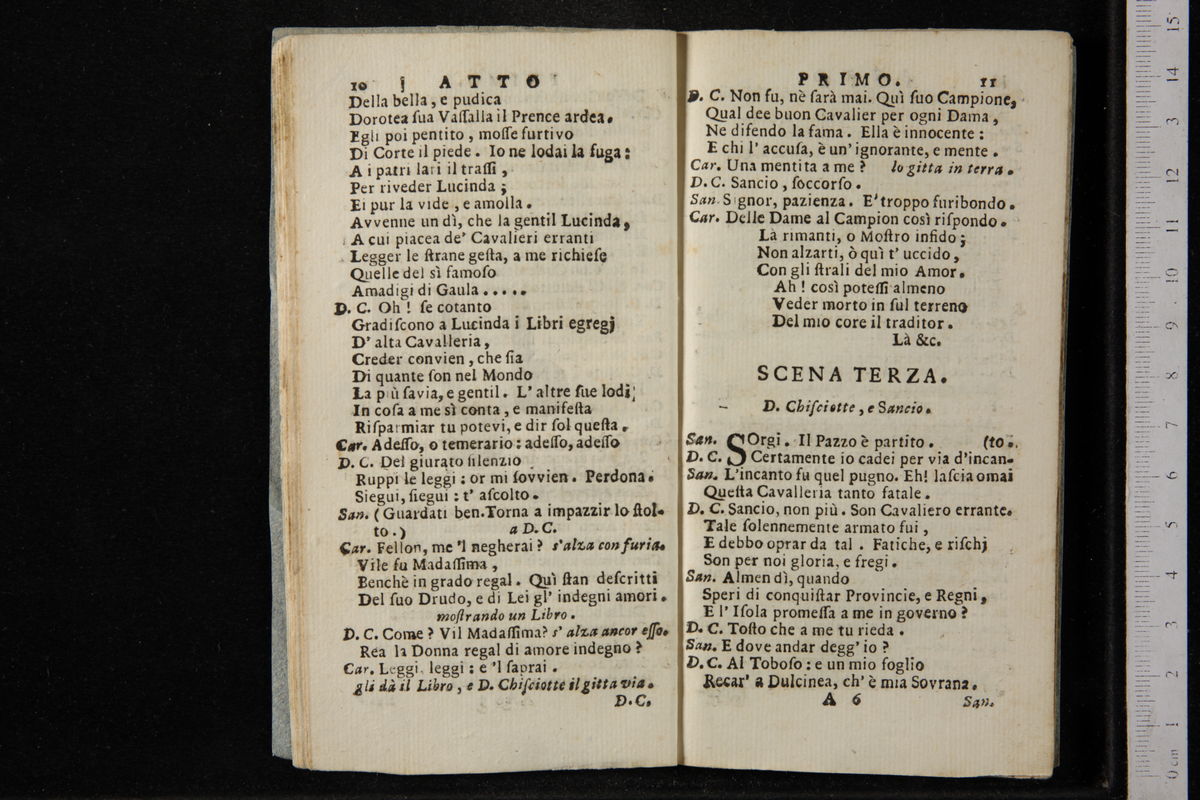 10 ATTO
Della bella, e pudica
Dorotea ſua Vaſſalla il Prence ardea.
Egli poi pentito, moſſe furtivo
Di Corte il piede. Io ne lodai la fuga:
A i patri lari il traſſi,
Per riveder Lucinda;
Ei pur la vide, e amolla.
Avvenne un dì, che la gentil Lucinda,
A cui piacea de' Cavalieri erranti
Legger le ſtrane geſta, a me richieſe
Quelle del sì famoſo
Amadigi di Gaula.....
D. C. Oh! ſe cotanto
Gradiſcono a Lucinda i Libri egregj
D' alta Cavalleria,
Creder convien, che ſia
Di quante ſon nel Mondo
La più ſavia, e gentil. L' altre ſue lodi,
In coſa a me sì conta, e manifeſta
Riſparmiar tu potevi, e dir ſol queſta.
Car. Adeſſo, o temerario: adeſſo, adeſſo
D. C. Del giurato ſilenzio
Ruppi le leggi: or mi ſovvien. Perdona.
Siegui, ſiegui: t' aſcolto.
San. (Guardati ben. Torna a impazzir lo ſtol-
to.) a D. C.
Car. Fellon, me 'l negherai? s'alza con furia.
Vile fu Madaſſima,
Benchè in grado regal. Quì ſtan deſcritti
Del ſuo Drudo, e di Lei gl' indegni amori.
moſtrando un Libro.
D. C. Come? Vil Madaſſima? s' alza ancor eſſo.
Rea la Donna regal di amore indegno?
Car. Leggi, leggi: e 'l ſaprai.
gli dà il Libro, e D. Chiſciotte il gitta via.
D. C.
PRIMO. 11
D. C. Non fu, nè ſarà mai. Quì ſuo Campione,
Qual dee buon Cavalier per ogni Dama,
Ne difendo la fama. Ella è innocente:
E chi l' accuſa, è un' ignorante, e mente.
Car. Una mentita a me? lo gitta in terra.
D. C. Sancio, ſoccorſo.
San. Signor, pazienza. E' troppo furibondo.
Car. Delle Dame al Campion così riſpondo.
Là rimanti, o Moſtro infido;
Non alzarti, ò quì t' uccido,
Con gli ſtrali del mio Amor.
Ah! così poteſſi almeno
Veder morto in ſul terreno
Del mio core il traditor.
Là &c.
SCENA TERZA.
D. Chiſciotte, e Sancio.
San. SOrgi. Il Pazzo è partito. (to.
D. C. Certamente io cadei per via d'incan-
San. L'incanto fu quel pugno. Eh! laſcia omai
Queſta Cavalleria tanto fatale.
D. C. Sancio, non più. Son Cavaliero errante.
Tale ſolennemente armato fui,
E debbo oprar da tal. Fatiche, e riſchj
Son per noi gloria, e fregi.
San. Almen dì, quando
Speri di conquiſtar Provincie, e Regni,
E l' Iſola promeſſa a me in governo?
D. C. Toſto che a me tu rieda.
San. E dove andar degg' io?
D. C. Al Toboſo: e un mio foglio
Recar' a Dulcinea, ch' è mia Sovrana.
A 6 San.
0 cm 1 2 3 4 5 6 7 8 9 10 11 12 13 14 15